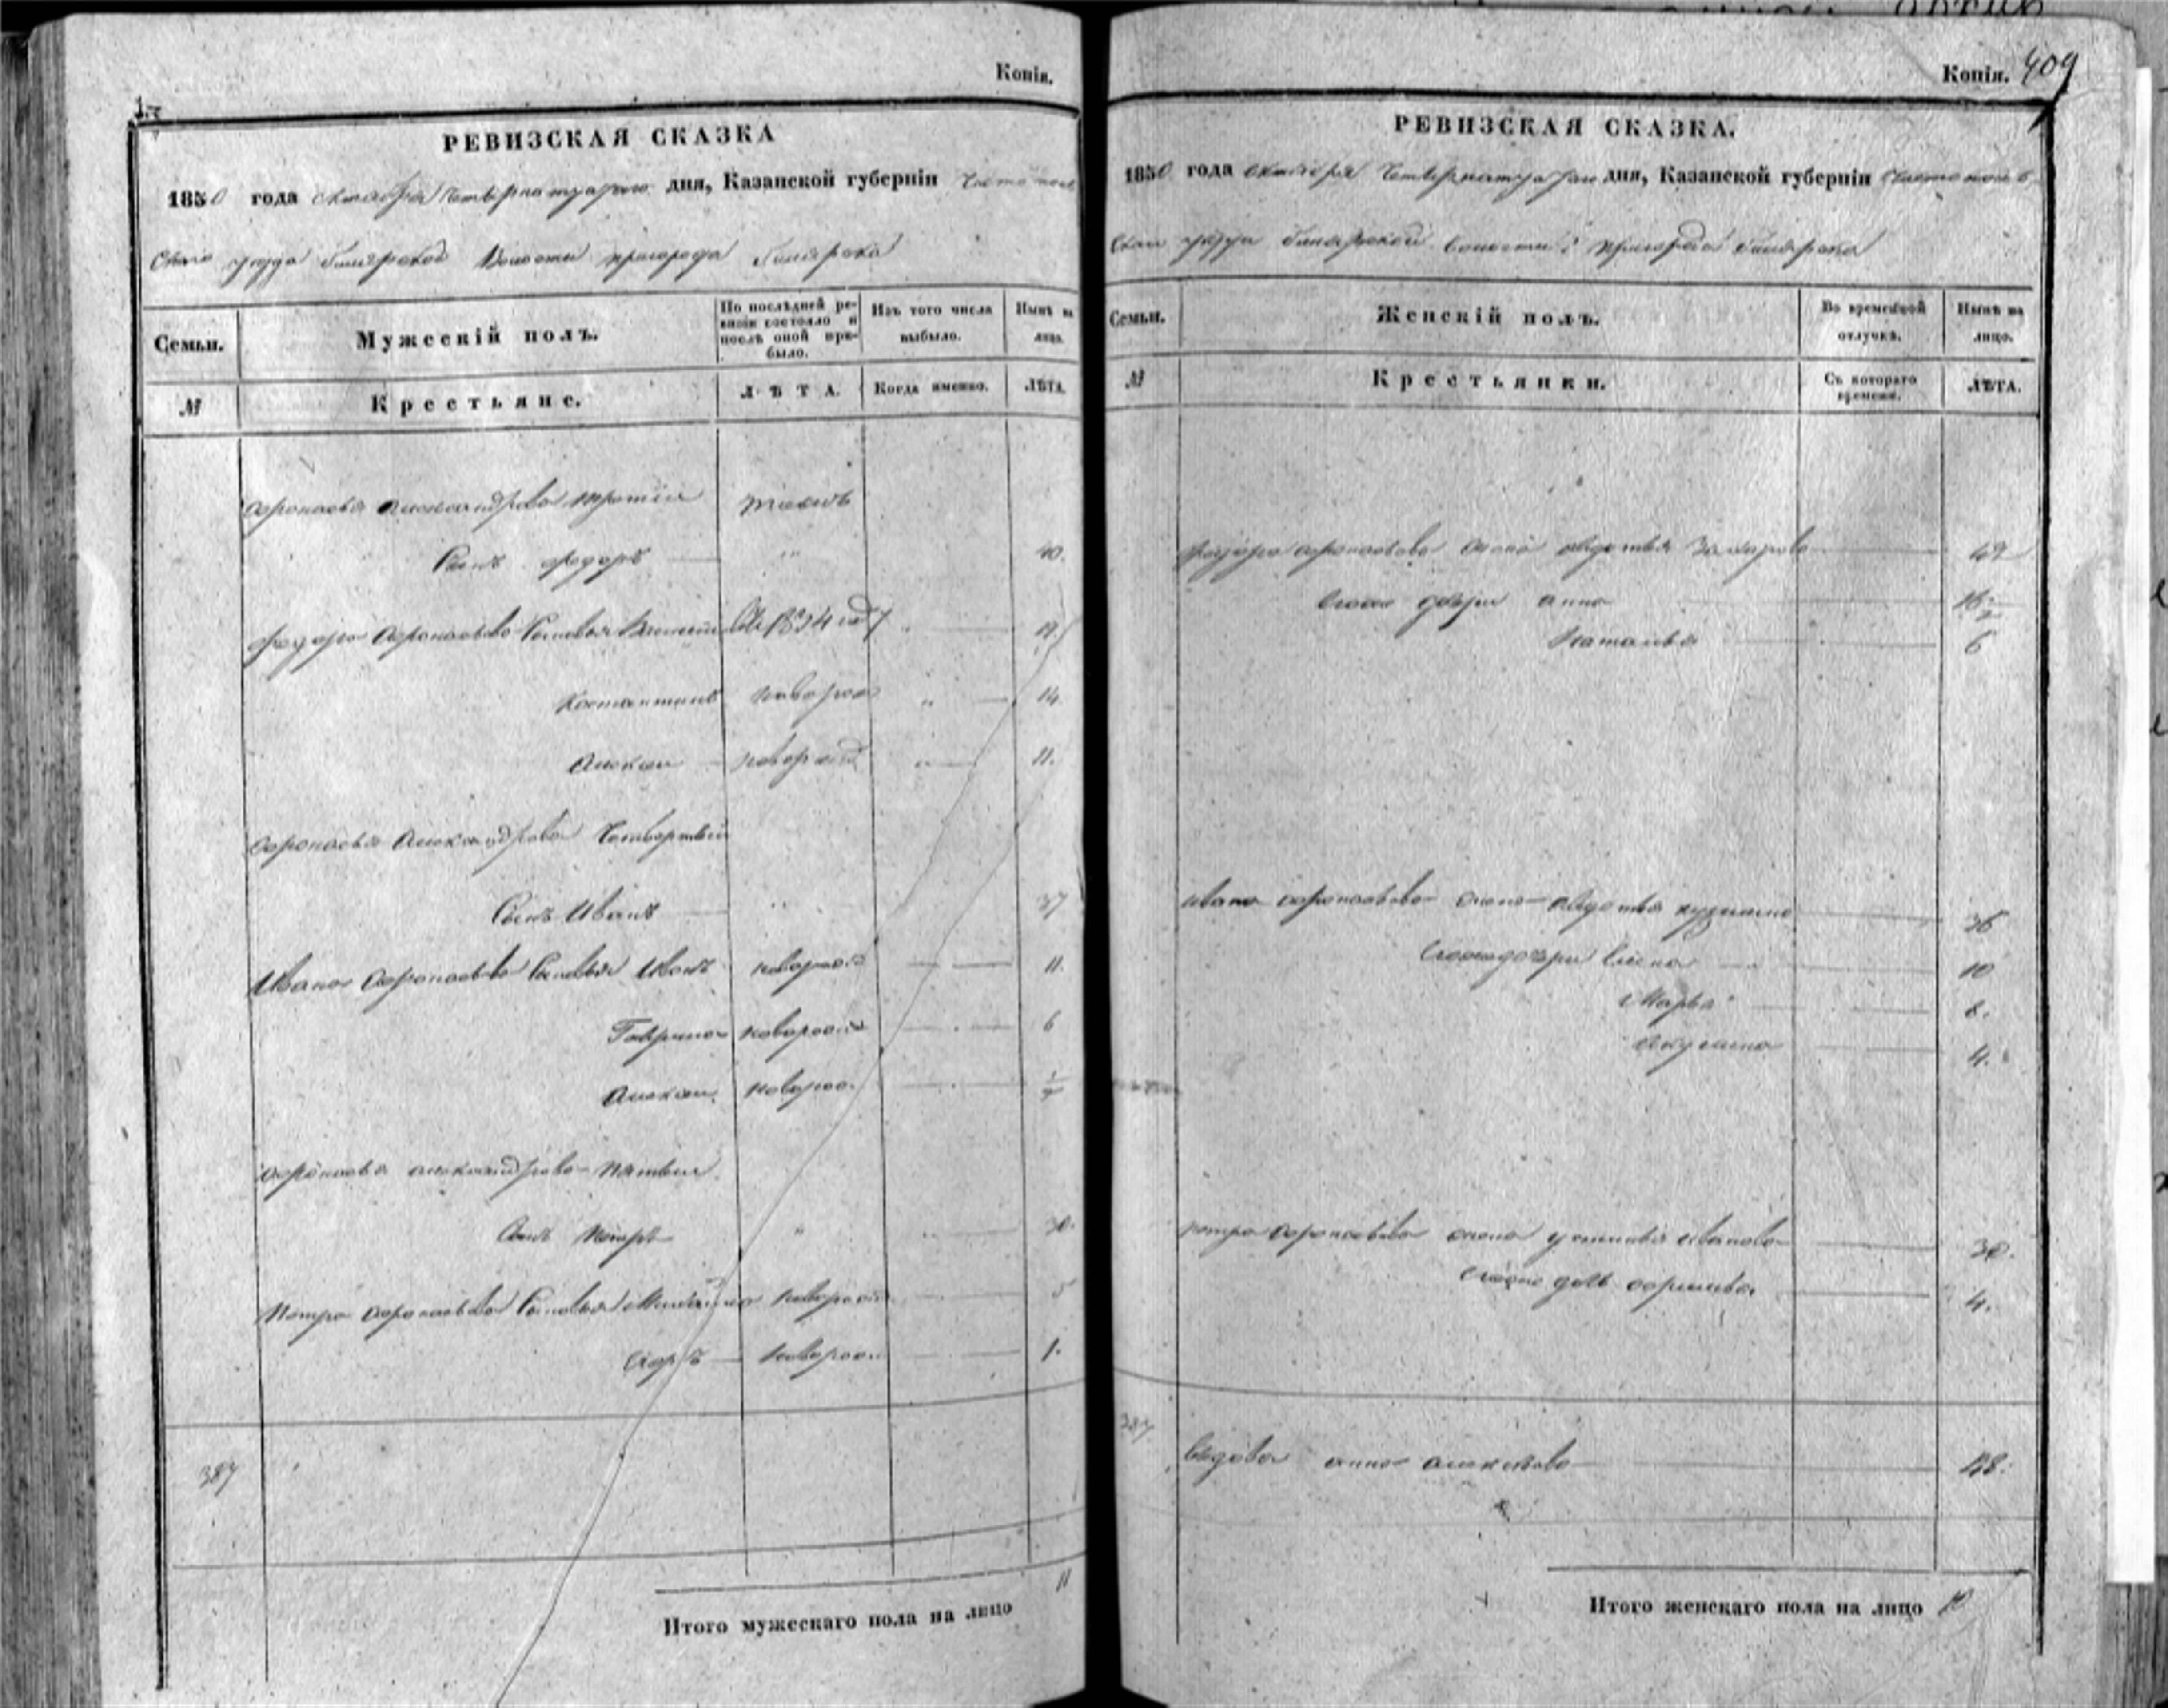 Копія.
РЕВИЗСКАЯ СКАЗКА
1850 года октября четырнатцатаго дня, Казанской губерніи Чистополь
скаго уезда Билярской Волости пригорода Билярска
Семьи.
Мужескій полъ.
По послѣдней ре-
визіи состояло и
послѣ оной при-
было.
Изъ того числа
выбыло.
Нынѣ на
лицо.
№
Крестьяне.
ЛѢТА.
Когда именно.
ЛѢТА.
Афонасья Александрова третий
Сынъ Федоръ 40.
Федора Афонасьева Сыновья 1834 19
Костантинъ новорож 14.
Алексей новорожд 11.
Афонасья Александрова Четвертый
Сынъ Иванъ 37
Ивана Афонасьева Сыновья новорож 11.
Гаврила новорож 6
Алексей новорож.
Афонасья Александрова пятый
Сынъ Петръ 30.
Петра Афонасьева Сыновья новорож 5
новорож 1.
387
Итого мужескаго пола на лицо 11
Копія. 409
РЕВИЗСКАЯ СКАЗКА.
1850 года октября Четырнатцатаго дня, Казанской губерніи Чистополь
скаго уезда Билярской волости пригорода Билярска
Семьи.
Женскій полъ.
Во временной
отлучкѣ.
Нынѣ на
лицо.
№
Крестьянки.
Съ котораго
времени.
ЛѢТА.
Федора Афонасьева жена Авдотья Захарова 42
дочери Анна
Наталья 6
Ивана Афонасьева жена Авдотья 36
дочери Елена 10
Марья 8.
Акулина 4.
Петра Афонасьева жена Устинья Иванова 30.
4.
387
Вдова Анна Алексеева 48.
Итого женскаго пола на лицо 10